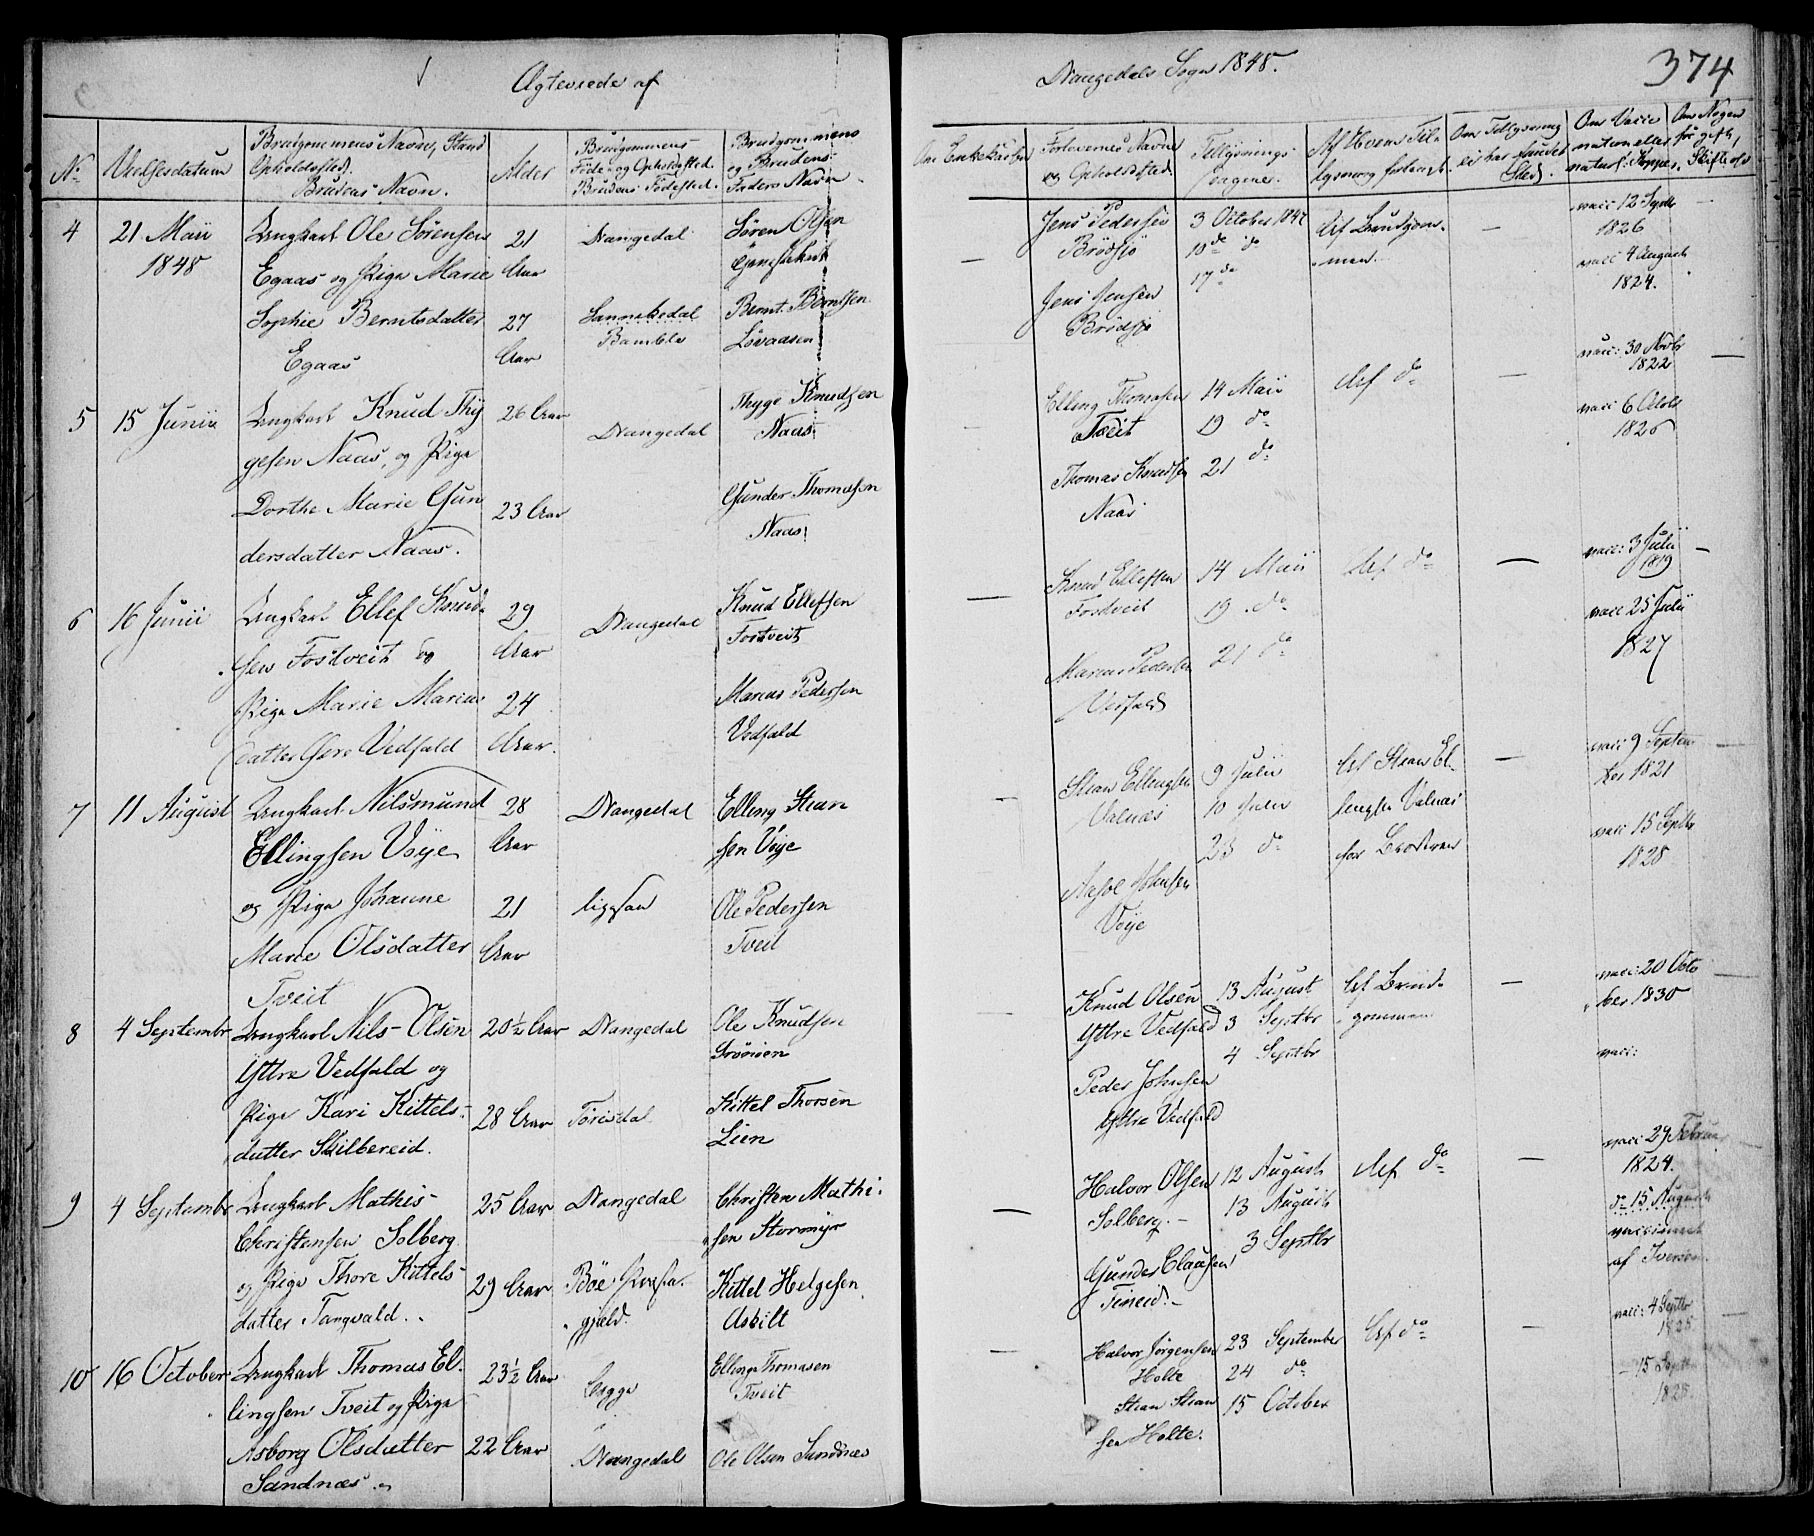 Ægteviede af
Drangedals Sogn 1848.
374
No
Vielsesdatum
Brudgommens Navn, Stand
Opholdssted.
Brudens Navn.
Alder
Brudgommens
Føde- og Opholdssted.
Brudens Fødested.
Brudgommens
og Brudens
Faders Navn
Om Enkekarl
Forlovernes Navne
og Opholdssted.
Tillysnings-
dagene.
Af Hvem Til-
lysning forlangt.
Om Tillysning
ei har fundet
Sted.
Om Vacci
nation eller
naturl: Kopper.
Om Nogen
før gift,
Skifte
4
21 Maii
1848
Ungkarl Ole Sörensen
Egaas og Pige Marie
Sophie Berntsdatter
Egaas
21
Aar
27
Aar
Drangedal
Sannikedal
Bamble
Søren Olsen
Bernt Berntsen
Lövaasen
Jens Pedersen
Brödsjö
Jens Jensen
Brödsjö
3 October 1847
10 do do
17 do
Af Brudgom-
men.
vacc 12 Septb
1826
vacc 4 August
1824.
5
15 Junii
Ungkarl Knud Thy
gesen Naas, og Pige
Dorthe Marie Gun
dersdatter Naas.
26 Aar
23 Aar
Drangedal
Thyge Knudsen
Naas
Gunder Thomesen
Naas
Elling Thomasen
Tveit
Thomas Knudsen
Naas
14 Maii
19 do
21 do
Af do
vacc: 30 Novbr
1822
vacc 6 Octob
1826
6
16 Junii
Ungkarl Ellef Knud-
sen Fostveit og
Pige Marie Marius
datter Vedfald
29
Aar
24
Aar.
Drangedal
Knud Ellefsen
Fostveit
Marius Pedersen
Vedfald
Knud Ellefsen
Fostveit
Marius Pedersen
Vedfald
14 Maii
19 do
21 do
Af do
vacc: 3 Julii
1819
vacc 25 Julii
1827
7
11 August
Ungkarl Nilsmund
Ellingsen Vöje
og Pige Johanne
Marie Olsdatter
Tveit
28
Aar
21
Aar
Drangedal
ligesaa
Elling Stian
sen Vöje
Ole Pedersen
Tveit
Stian Ellingsen
Valnæs
Johnsen
Vöje
9 Julii
10 Julii
23 do
Af Stian El-
lingsen Valnæs
for Brodren
vacc 9 Septem
ber 1821
vacc 15 Septb
1828
8
4 Septembr
Ungkarl Nils Olsen
Yttre Vedfald og
Pige Kari Kittels-
datter Skilbereid.
20½ Aar
28 Aar
Drangedal
Törisdal
Ole Knudsen
Kittel Thorsen
Lien
Knud Olsen
Yttre Vedfald
Peder Johnsen
Yttre Vedfald
13 August
3 Septbr
4 Septbr
Af Brud-
gommen
vacc: 20 Octo
ber 1830
vacc:
9
4 Septembr
Ungkarl Mathis
Christensen Solberg
og Pige Thore Kittels-
datter Tangvald.
25 Aar
29 Aar
Drangedal
Böe Præste-
gjeld.
Christen Mathi-
sen Stormyr
Kittel Helgesen
Asbilt
Halvor Olsen
Solberg.
Gunder Clausen
Tineid.
12 August
13 August
3 Septbr
Af do
vacc 29 Februar
1824.
do 15 August
vaccineret
af Iversen
10
16 October
Ungkarl Thomas El-
lingsen Tveit og Pige
Asborg Olsdatter
Sandnæs
23½ Aar
22 Aar
Drangedal
Elling Thomasen
Tveit
Ole Olsen Sandnæs
Halvor Jörgensen
Holte
Stian Stian
sen Holte.
23 September
24 do
15 October
Af do
vacc: 4 Septbr
1825
15 Septbr
1828